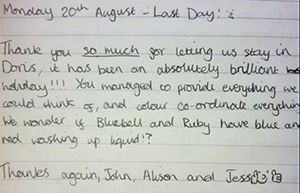 Monday 20th August - Last Day! :(
Thank you so much for letting us stay in
Doris, it has been an absolutely brilliant
holiday!!! You managed to provide everything we
could think of, and colour co-ordinate everything
We wonder is Bluebell and Ruby have blue and
red washing up liquid!?
Thanks again, John, Alison and Jess